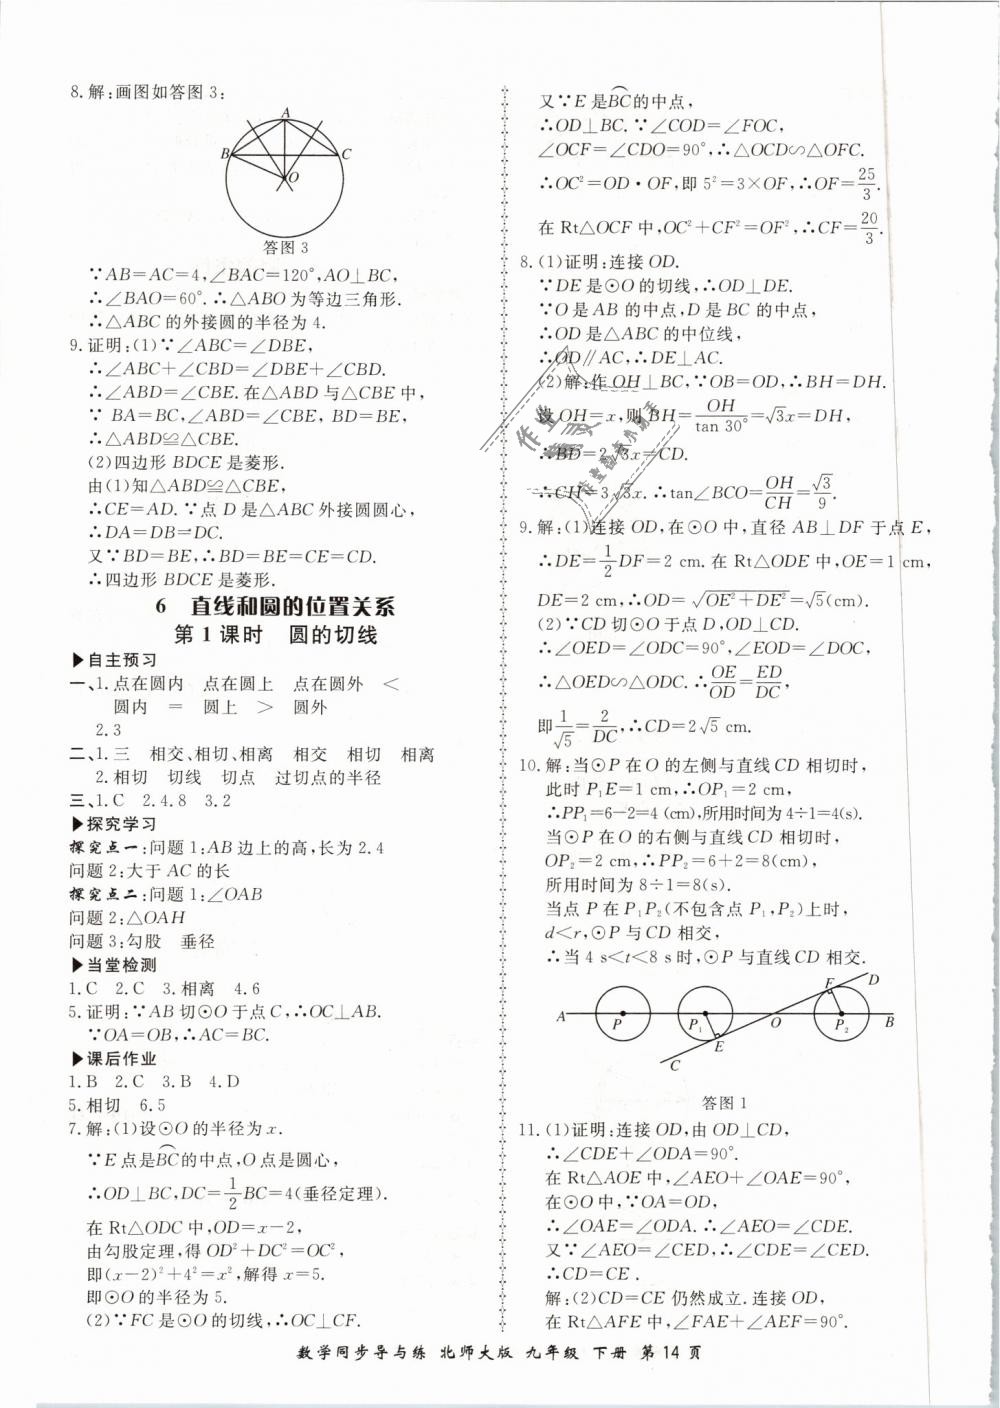 8.解:画图如答图3:
A
B
C
O
答图3
∵AB=AC=4,∠BAC=120°,AO⊥BC,
∴∠BAO=60°.∴△ABO为等边三角形.
∴△ABC的外接圆的半径为4.
9.证明:(1)∵∠ABC=∠DBE,
∴∠ABC+∠CBD=∠DBE+∠CBD.
∴∠ABD=∠CBE.在△ABD与△CBE中,
∵ BA=BC,∠ABD=∠CBE, BD=BE,
∴△ABD≌△CBE.
(2)四边形BDCE是菱形.
由(1)知△ABD≌△CBE,
∴CE=AD.∵点D是△ABC外接圆圆心,
∴DA=DB=DC.
又∵BD=BE,∴BD=BE=CE=CD.
∴四边形BDCE是菱形.
6 直线和圆的位置关系
第1课时 圆的切线
▶自主预习
一、1.点在圆内 点在圆上 点在圆外 <
圆内 = 圆上 > 圆外
2.3
二、1.三 相交、相切、相离 相交 相切 相离
2.相切 切线 切点 过切点的半径
三、1.C 2.4.8 3.2
▶探究学习
探究点一:问题1:AB边上的高,长为2.4
问题2:大于AC的长
探究点二:问题1:∠OAB
问题2:△OAH
问题3:勾股 垂径
▶当堂检测
1.C 2.C 3.相离 4.6
5.证明:∵AB切⊙O于点C,∴OC⊥AB.
∵OA=OB,∴AC=BC.
▶课后作业
1.B 2.C 3.B 4.D
5.相切 6.5
7.解:(1)设⊙O的半径为x.
∵E点是BC⌒的中点,O点是圆心,
∴OD⊥BC,DC=1/2BC=4(垂径定理).
在Rt△ODC中,OD=x-2,
由勾股定理,得OD²+DC²=OC²,
即(x-2)²+4²=x²,解得x=5.
即⊙O的半径为5.
(2)∵FC是⊙O的切线,∴OC⊥CF.
又∵E是BC⌒的中点,
∴OD⊥BC.∵∠COD=∠FOC,
∠OCF=∠CDO=90°,∴△OCD∽△OFC.
∴OC²=OD·OF,即5²=3×OF,∴OF=25/3.
在Rt△OCF中,OC²+CF²=OF²,∴CF=20/3.
8.(1)证明:连接OD.
∵DE是⊙O的切线,∴OD⊥DE.
∵O是AB的中点,D是BC的中点,
∴OD是△ABC的中位线,
∴OD∥AC,∴DE⊥AC.
(2)解:作OH⊥BC,∵OB=OD,∴BH=DH.
设OH=x,则BH=OH/tan 30°=√3x=DH,
∴BD=2√3x=CD.
∴CH=3√3x.∴tan∠BCO=OH/CH=√3/9.
9.解:(1)连接OD,在⊙O中,直径AB⊥DF于点E,
∴DE=1/2DF=2 cm.在Rt△ODE中,OE=1 cm,
DE=2 cm,∴OD=√(OE²+DE²)=√5(cm).
(2)∵CD切⊙O于点D,OD⊥CD.
∴∠OED=∠ODC=90°,∠EOD=∠DOC,
∴△OED∽△ODC.∴OE/OD=ED/DC,
即1/√5=2/DC,∴CD=2√5 cm.
10.解:当⊙P在O的左侧与直线CD相切时,
此时P₁E=1 cm,∴OP₁=2 cm,
∴PP₁=6-2=4 (cm),所用时间为4÷1=4(s).
当⊙P在O的右侧与直线CD相切时,
OP₂=2 cm,∴PP₂=6+2=8(cm),
所用时间为8÷1=8(s).
当点P在P₁P₂(不包含点P₁,P₂)上时,
d<r,⊙P与CD相交,
∴当4 s<t<8 s时,⊙P与直线CD相交.
A
P
P₁
E
C
O
F
D
P₂
B
答图1
11.(1)证明:连接OD,由OD⊥CD,
∴∠CDE+∠ODA=90°.
在Rt△AOE中,∠AEO+∠OAE=90°,
在⊙O中,∵OA=OD,
∴∠OAE=∠ODA.∴∠AEO=∠CDE.
又∵∠AEO=∠CED,∴∠CDE=∠CED.
∴CD=CE.
解:(2)CD=CE仍然成立.连接OD,
在Rt△AFE中,∠FAE+∠AEF=90°.
数学同步导与练 北师大版 九年级 下册 第14页